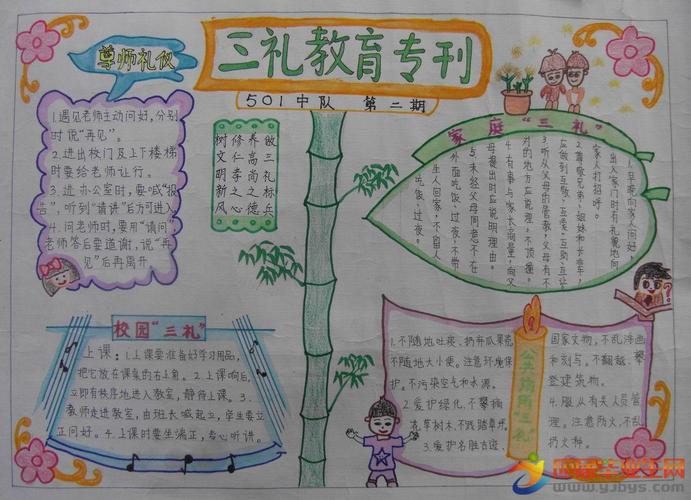 尊师礼仪
三礼教育专刊
501中队 第二期
1.遇见老师主动问好，分别
时说“再见”。
2.进出校门及上下楼梯
时要给老师让行。
3.进办公室时，要喊“报
告”，听到“请讲”后方可进入
4.问老师时，要用“请问”
老师答后要道谢，说“再
见”后再离开.
树文明新风
修仁孝之心
养高尚之德
做三礼标兵
家庭“三礼”
1.早晚向家人问好，
出入家门时有礼貌地向
家人打招呼。
2.尊敬兄弟、姐妹和长辈，
应做到互敬、互爱、互助、互让
3.听从父母的管教，父母有不
对的地方应说理，不顶撞。
4.有事与家长商量，向父
母提出时应说明理由。
5.未经父母同意不在
外面吃饭、过夜，不带
生人回家，不留人
吃饭、过夜。
校园“三礼”
上课：1.上课要准备好学习用品，
把它放在课桌的右上角。2.上课响后，
立即有秩序地进入教室，静待上课。3.
教师走进教室，由班长喊起立，学生要立
正问好。4.上课时要坐端正，专心听讲。
公共场所“三礼”
1.不随地吐痰、扔弃瓜果壳
不随地大小便。注意环境保
护。不污染空气和水源。
2.爱护绿化，不攀摘
花草树木，不践踏草坪。
3.爱护名胜古迹、
国家文物，不乱涂画
和刻写。不翻越、攀
登建筑物。
4.服从有关人员管
理。注意防火，不乱
扔火种。
www.yjbys.com